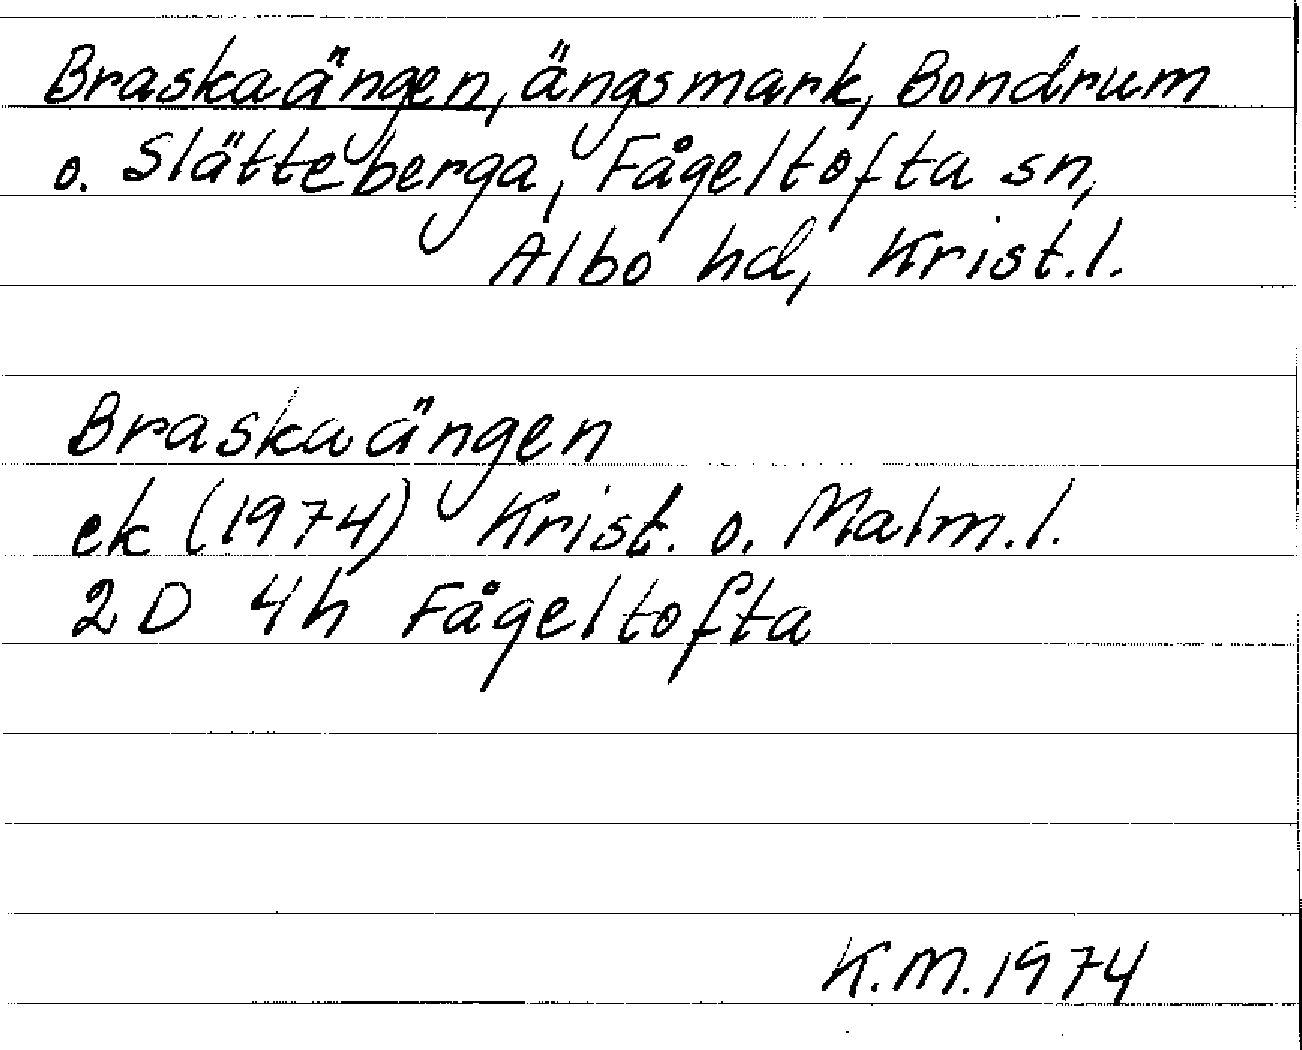 Braskaängen, ängsmark, Bondrum
o. Slätteberga, Fågeltofta sn,
Albo hd, Krist.l.
Braskaängen
ek (1974) Krist. o. Malm.l.
2D 4h Fågeltofta
K.M. 1974